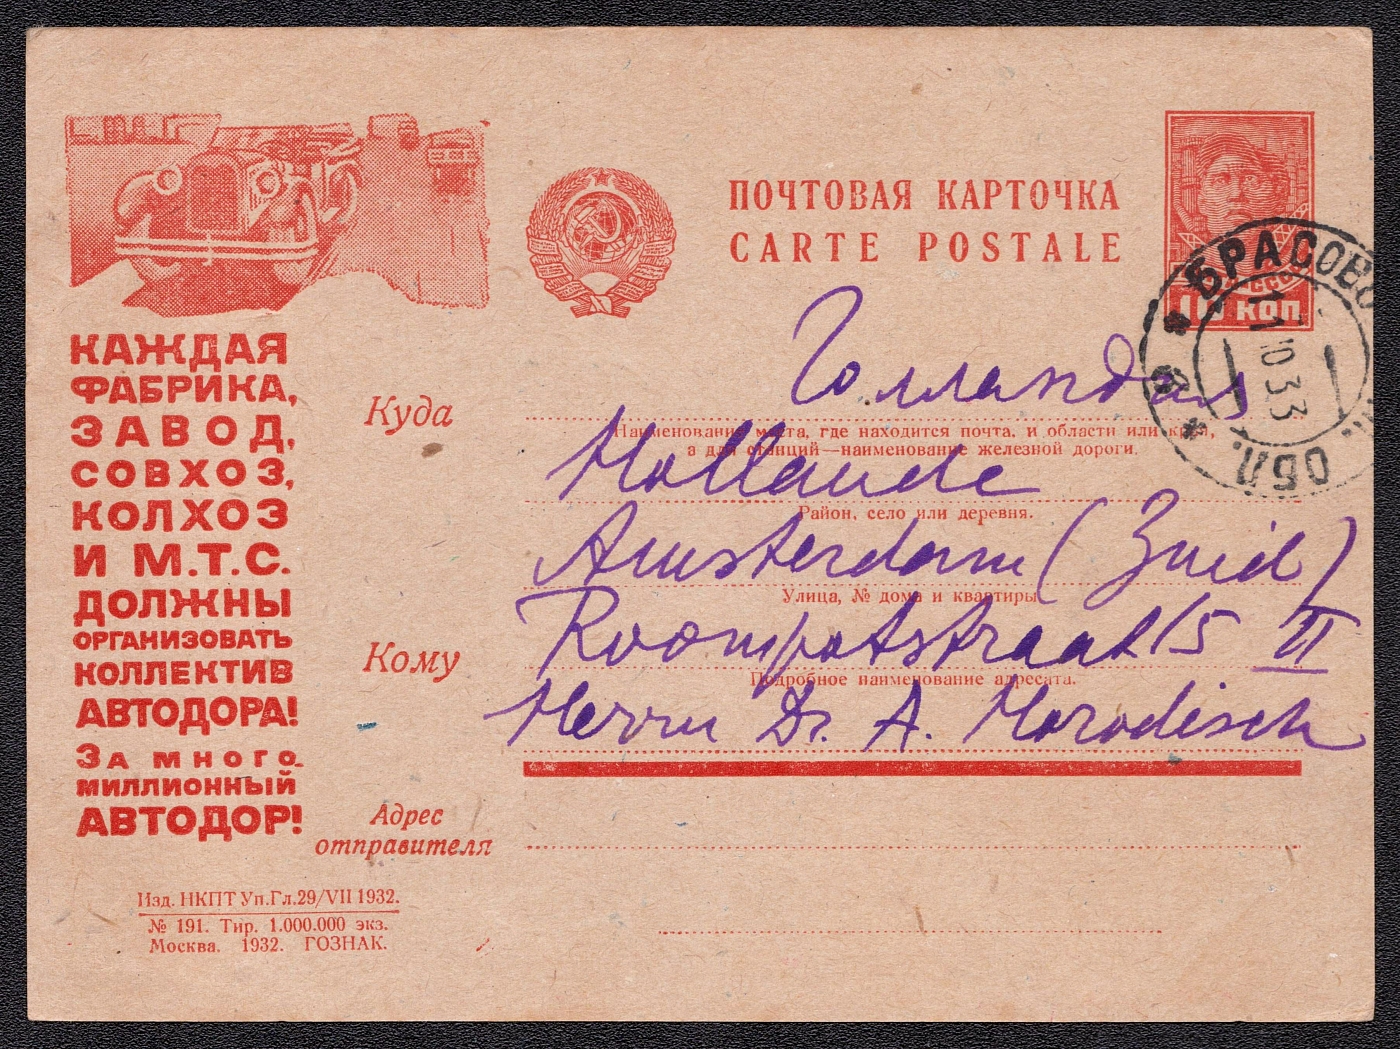 ПОЧТОВАЯ КАРТОЧКА
CARTE POSTALE
10 КОП
БРАСОВО
11 10 33
ОБЛ.
КАЖДАЯ
ФАБРИКА,
ЗАВОД,
СОВХОЗ,
КОЛХОЗ
И М.Т.С.
ДОЛЖНЫ
ОРГАНИЗОВАТЬ
КОЛЛЕКТИВ
АВТОДОРА!
ЗА МНОГО-
МИЛЛИОННЫЙ
АВТОДОР!
Куда
Голландия
Наименование места, где находится почта, и области или края,
а для станций—наименование железной дороги.
Hollande
Район, село или деревня.
Amsterdam (Zuid)
Улица, № дома и квартиры
Roompotstraat 15 II
Кому
Подробное наименование адресата.
Herrn Dr. A. Horodisch
Адрес
отправителя
Изд. НКПТ Уп.Гл.29/VII 1932.
№ 191. Тир. 1.000.000 экз.
Москва. 1932. ГОЗНАК.